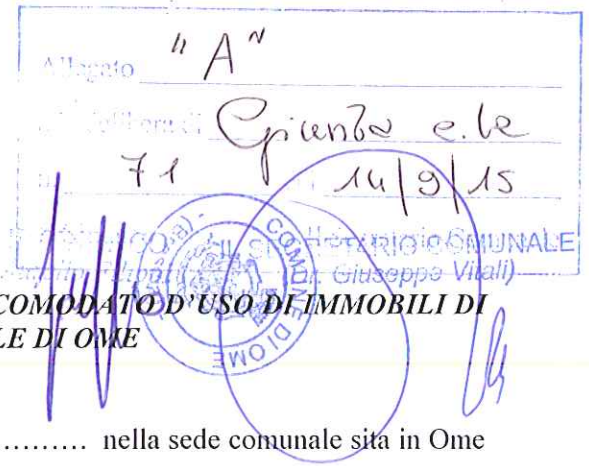 Allegato "A"
Giunta c.le
71 14/9/15
COMUNALE
Giuseppe Vitali)
COMUNE DI OME
COMODATO D'USO DI IMMOBILI DI
LE DI OME
......... nella sede comunale sita in Ome